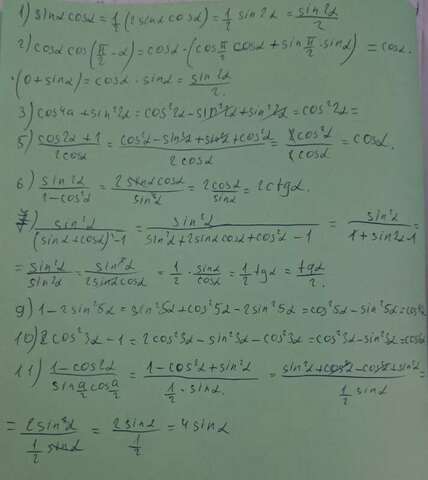 1) sinα cosα = 1/2 (2 sinα cosα) = 1/2 sin2α = sin2α/2
2) cosα cos(π/2 - α) = cosα · (cos π/2 cosα + sin π/2 · sinα) = cosα ·
· (0 + sinα) = cosα · sinα = sin2α/2.
3) cos4α + sin²2α = cos²2α - sin²2α + sin²2α = cos²2α =
5) (cos2α + 1)/(2cosα) = (cos²α - sin²α + sin²α + cos²α)/(2cosα) = (2cos²α)/(2cosα) = cosα.
6) sin2α/(1 - cos²α) = (2 sinα cosα)/sin²α = 2cosα/sinα = 2ctgα.
7) sin²α/((sinα + cosα)² - 1) = sin²α/(sin²α + 2sinα cosα + cos²α - 1) = sin²α/(1 + sin2α - 1) =
= sin²α/sin2α = sin²α/(2sinα cosα) = 1/2 · sinα/cosα = 1/2 tgα = tgα/2
9) 1 - 2sin²5α = sin²5α + cos²5α - 2sin²5α = cos²5α - sin²5α =
10) 2cos²3α - 1 = 2cos²3α - sin²3α - cos²3α = cos²3α - sin²3α =
11) (1 - cos2α)/(sin α/2 cos α/2) = (1 - cos²α + sin²α)/(1/2 · sinα) = (sin²α + cos²α - cos²α + sin²α)/(1/2 sinα) =
= 2sin²α/(1/2 sinα) = 2sinα/(1/2) = 4 sinα